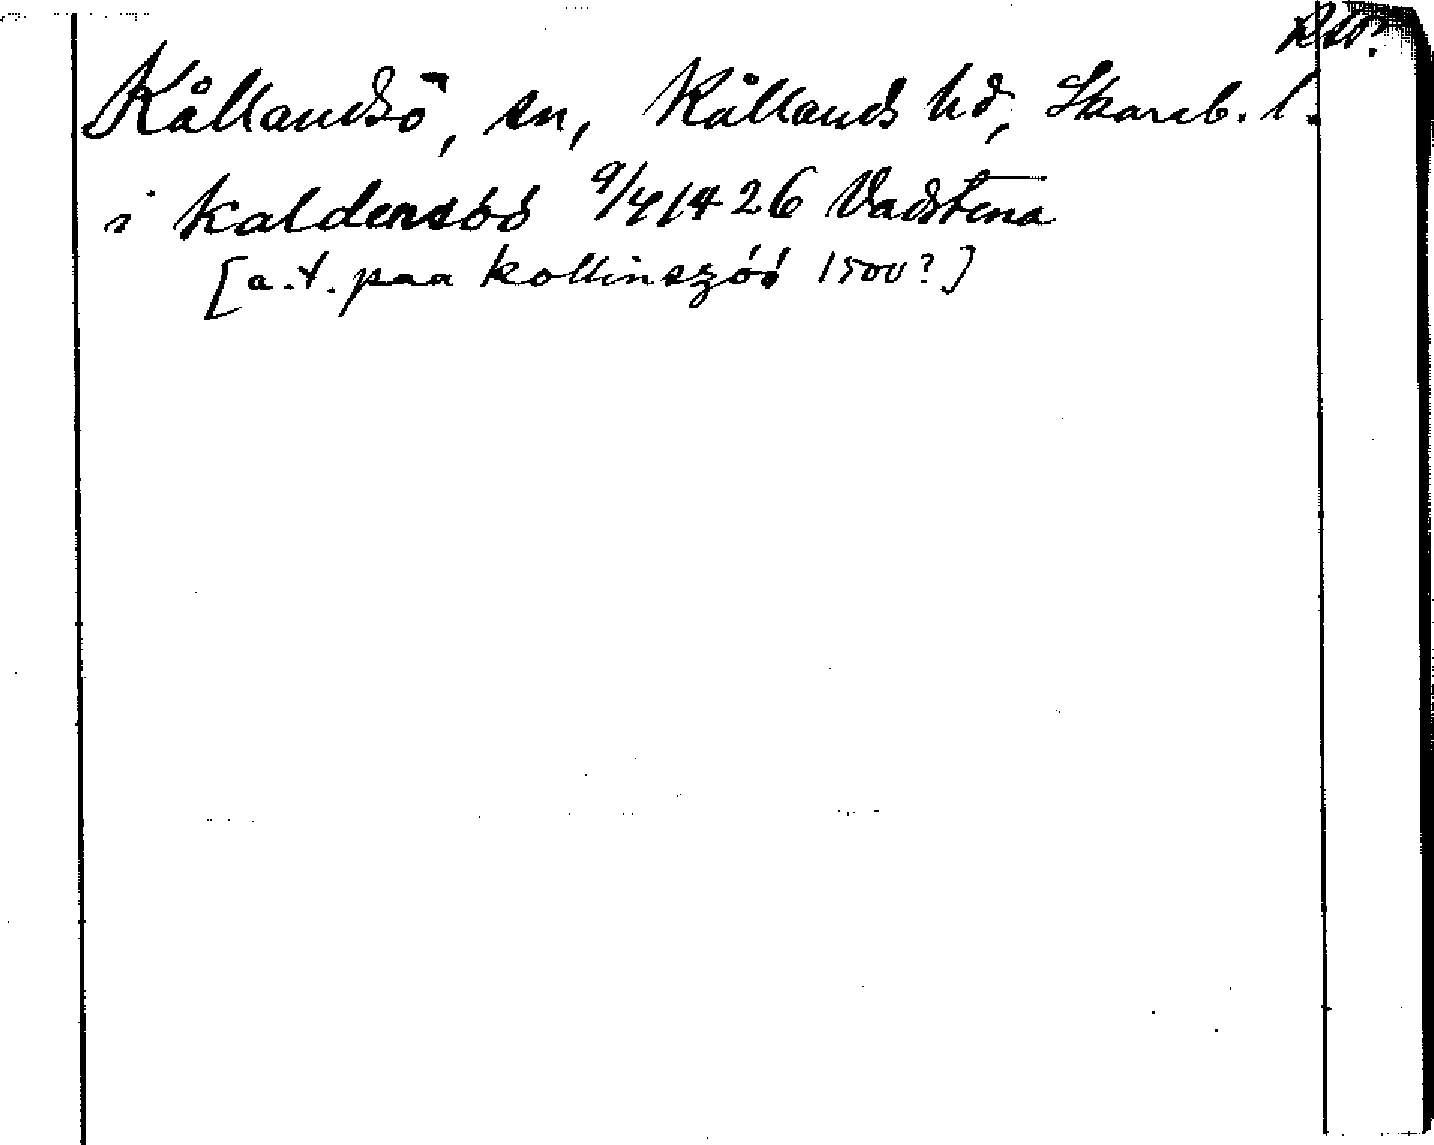 Kållandsö, sn, Kållands hd, Skarab. l.
i kaldensöö 9/4 1426 Vadstena
[a.t. paa kollinszöö 1500?]